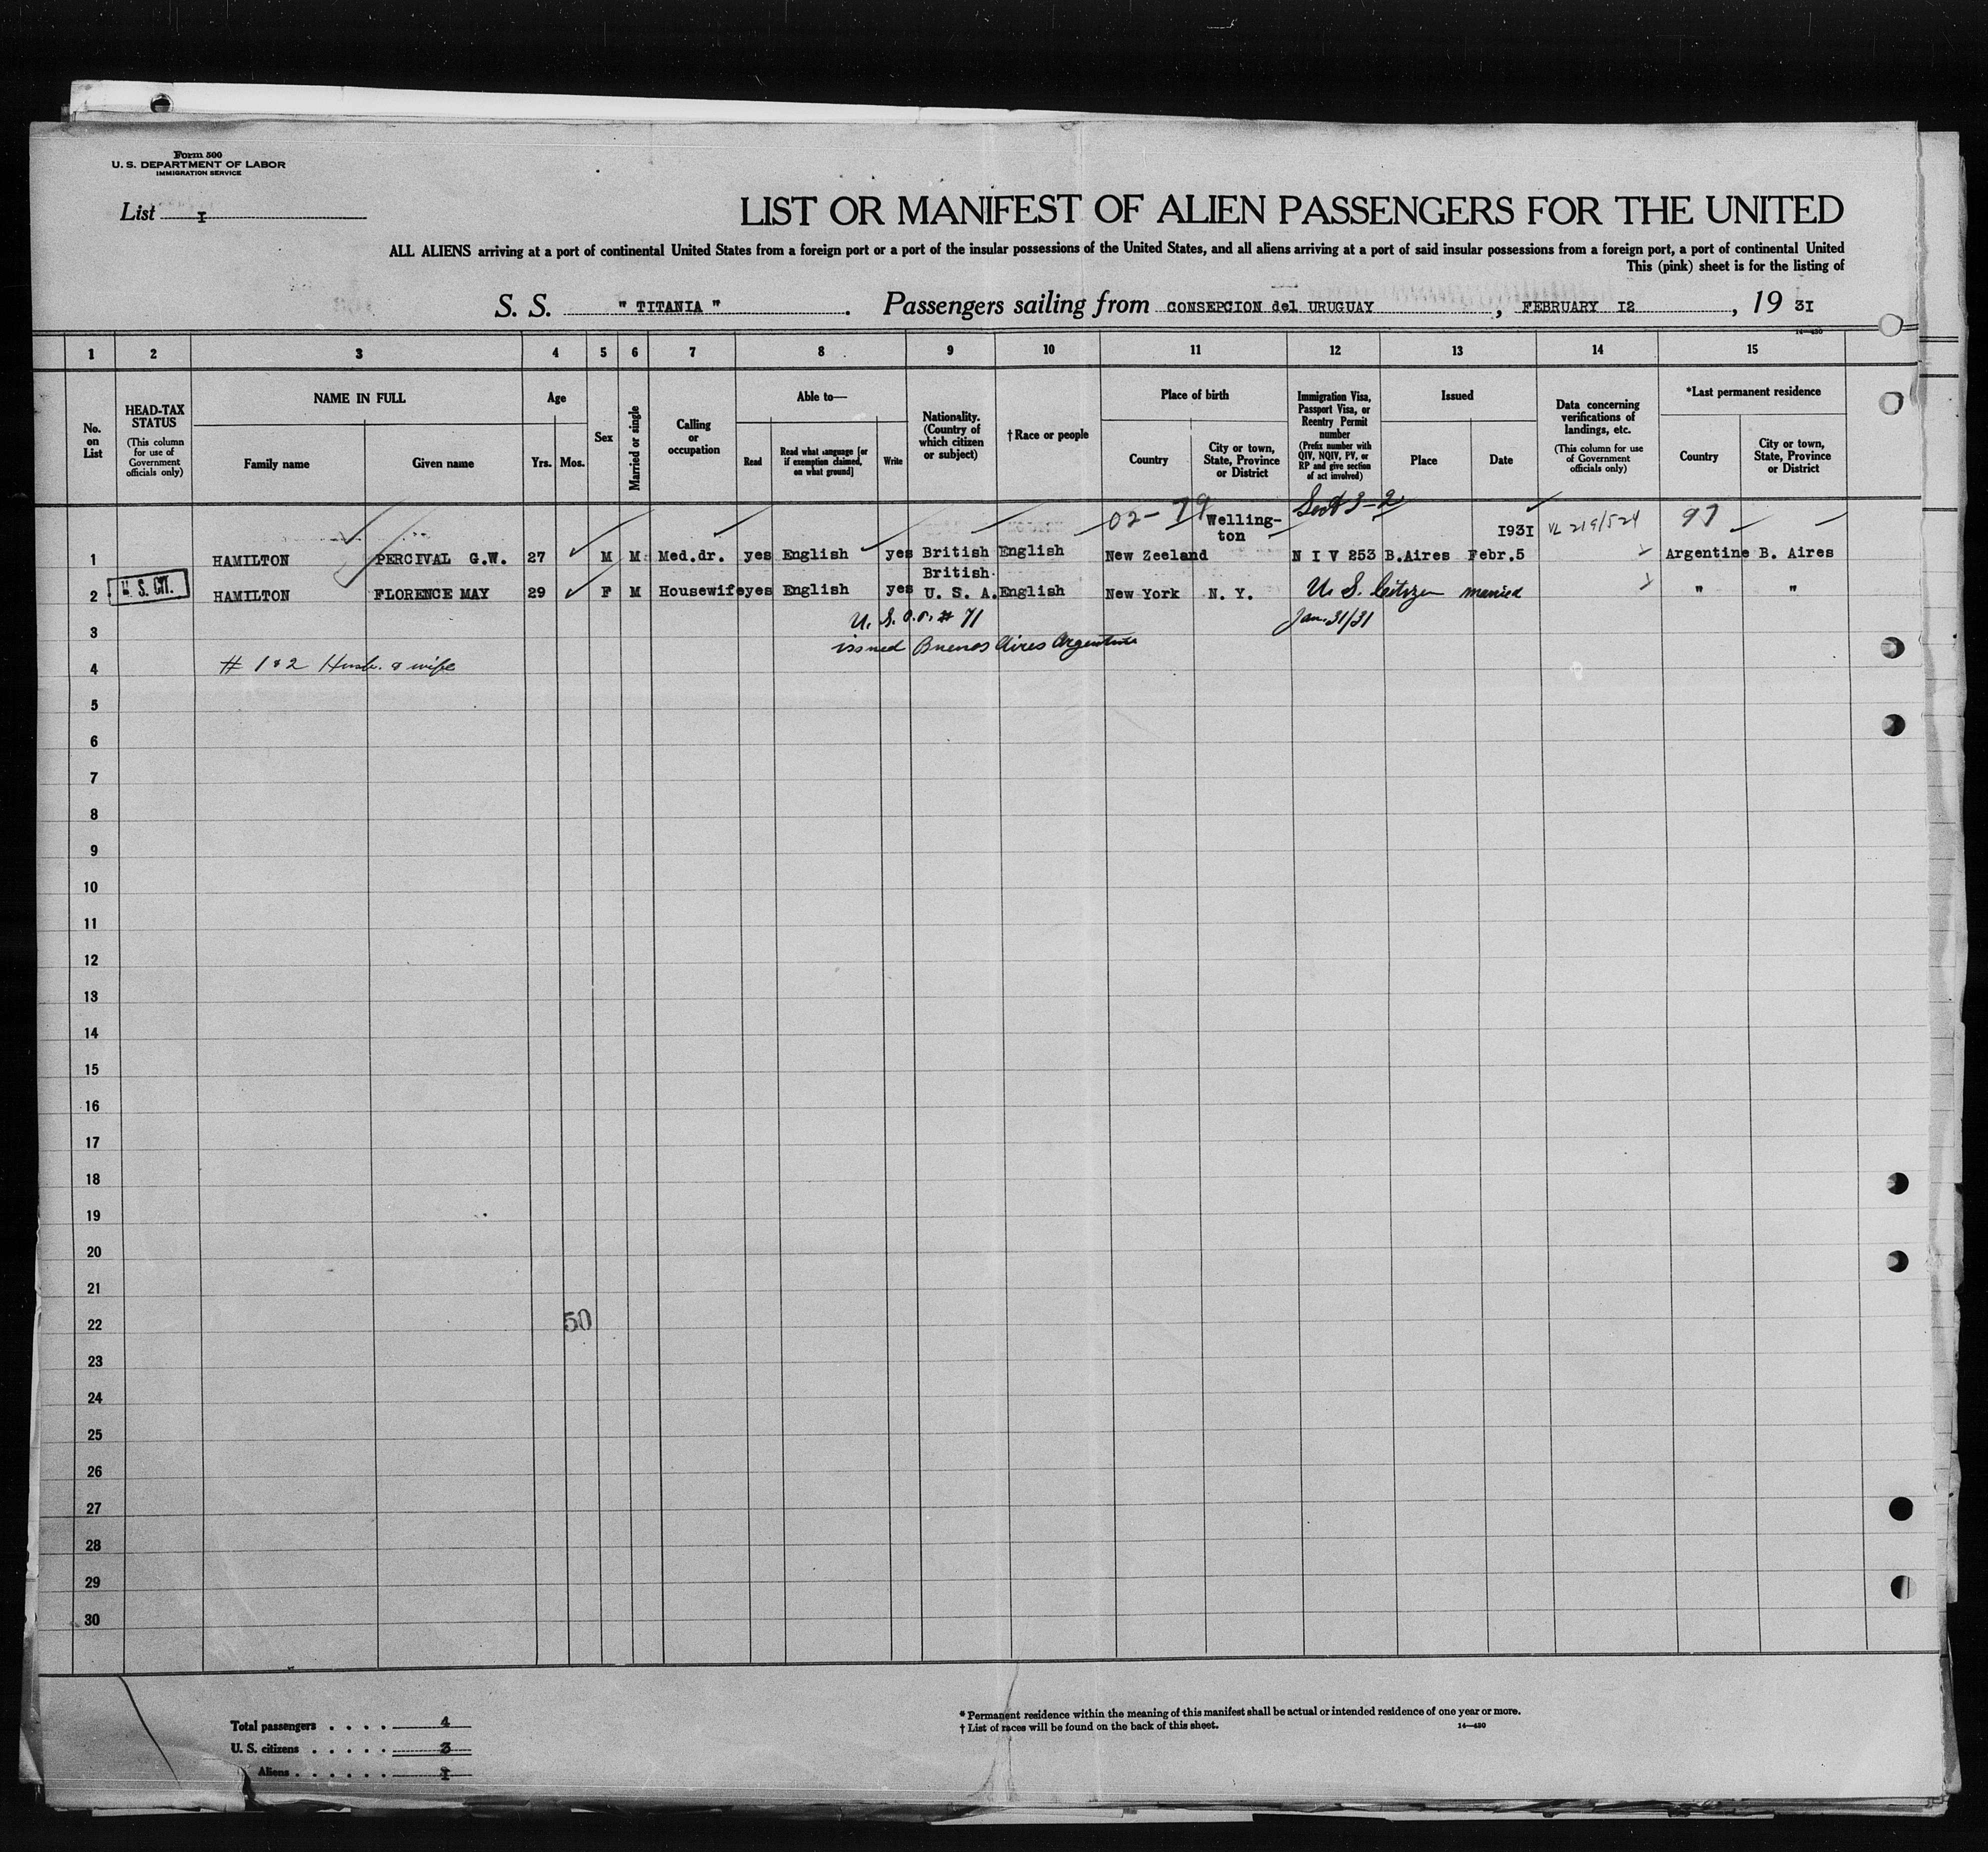 Form 500
U. S. DEPARTMENT OF LABOR
IMMIGRATION SERVICE
List I
LIST OR MANIFEST OF ALIEN PASSENGERS FOR THE UNITED
ALL ALIENS arriving at a port of continental United States from a foreign port or a port of the insular possessions of the United States, and all aliens arriving at a port of said insular possessions from a foreign port, a port of continental United
This (pink) sheet is for the listing of
S. S. " TITANIA ". Passengers sailing from CONSEPCION del URUGUAY, FEBRUARY 12, 19 31
14—430
1 2 3 4 5 6 7 8 9 10 11 12 13 14 15
No. on List
HEAD-TAX STATUS
(This column for use of Government officials only)
NAME IN FULL
Family name
Given name
Age
Yrs.
Mos.
Sex
Married or single
Calling or occupation
Able to—
Read
Read what language [or if exemption claimed, on what ground]
Write
Nationality. (Country of which citizen or subject)
†Race or people
Place of birth
Country
City or town, State, Province or District
Immigration Visa, Passport Visa, or Reentry Permit number
(Prefix number with QIV, NQIV, PV, or RP and give section of act involved)
Issued
Place
Date
Data concerning verifications of landings, etc.
(This column for use of Government officials only)
*Last permanent residence
Country
City or town, State, Province or District
02-79 Welling-ton Sect 3-2 1931 VL 219/524 97
1 HAMILTON PERCIVAL G.W. 27 M M Med.dr. yes English yes British English New Zeeland N I V 253 B.Aires Febr.5 Argentine B. Aires
British
2 U. S. CIT. HAMILTON FLORENCE MAY 29 F M Housewife yes English yes U. S. A. English New York N. Y. U. S. Citizen married " "
3 U. S. # 71 Jan. 31/31
issued Buenos Aires Argentine
4 # 1 & 2 Husb. & wife
5
6
7
8
9
10
11
12
13
14
15
16
17
18
19
20
21
22 50
23
24
25
26
27
28
29
30
Total passengers . . . . 4
U. S. citizens . . . . . 3
Aliens . . . . . . I
* Permanent residence within the meaning of this manifest shall be actual or intended residence of one year or more.
† List of races will be found on the back of this sheet.
14—430